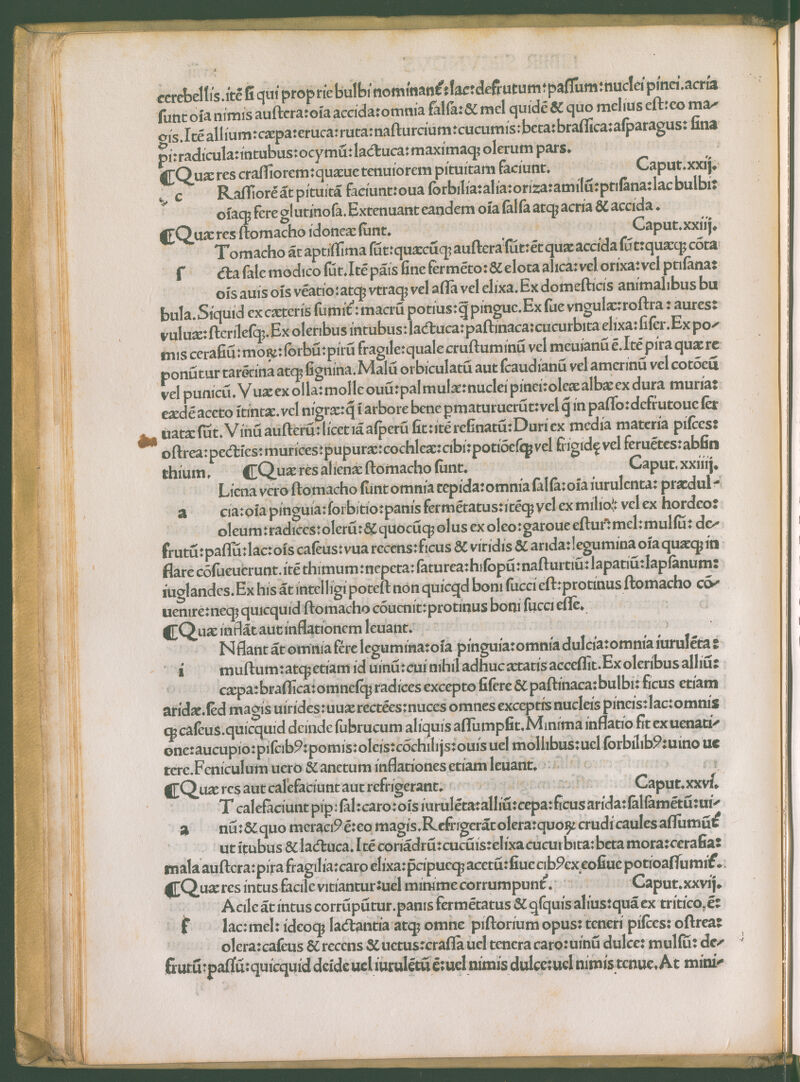 cerebellis.itē si qui proprie bulbi nominant̃:lac:defrutum:passum:nuclei pinei.acria
sunt oīa nimis austera:oīa accida:omnia falsa:& mel quidē & quo melius est:eo ma-
gis.Itē allium:cæpa:eruca:ruta:nasturcium:cucumis:beta:brassica:asparagus: sina
pi:radicula:intubus:ocymū:lactuca:maximaq; olerum pars.
¶Quæ res crassiorem:quæue tenuiorem pituitam faciunt. Caput.xxij.
c Rassiorē āt pituitā faciunt:oua sorbilia:alia:oriza:amilū:ptisana:lac bulbi:
oīaq; fere glutinosa.Extenuant eandem oīa salsa atq; acria & accida.
¶Quæ res stomacho idoneæ sunt. Caput.xxiij.
Tomacho āt aptissima sūt:quæcūq; austera sūt:ēt quæ accida sūt:quæq; cōta
s cta sale modico sūt.Itē pāis sine fermēto:& elota alica:vel orixa:vel ptisana:
oīs auis oīs vēatio:atq; vtraq; vel assa vel elixa.Ex domesticis animalibus bu
bula.Siquid ex cæteris sumit̃:macrū potius:q̄ pingue.Ex sue vngulæ:rostra: aures:
vuluæ:sterilesq;.Ex oleribus intubus:lactuca:pastinaca:cucurbita elixa:siser.Ex po-
mis cerasiū:moꝝ:sorbū:pirū fragile:quale crustuminū vel meuianū ē.Itē pira quæ re
ponūtur tarētina atq; signina.Malū orbiculatū aut scaudianū vel amerinū vel cotoeū
vel punicū.Vuæ ex olla:molle ouū:palmulæ:nuclei pinei:oleæ albæ ex dura muria:
eædē aceto ītintæ.vel nigræ:q̄ ī arbore bene pmaturuerūt:vel q̄ in passo:defrutoue ser
uatæ sūt.Vinū austerū:licet iā asperū sit:itē resinatū:Duri ex media materia pisces:
ostrea:pectīes:murices:pupuræ:cochleæ:cibi:potiōesq; vel frigidę vel feruētes:absin
thium. ¶Quæ res alienæ stomacho sunt. Caput.xxiiij.
Liena vero stomacho sunt omnia tepida:omnia salsa:oīa iurulenta: prædul-
a cia:oīa pinguia:sorbitio:panis fermētatus:itēq; vel ex milio: vel ex hordeo:
oleum:radices:olerū:& quocūq; olus ex oleo:garoue estur̃:mel:mulsū: de-
frutū:passū:lac:oīs caseus:vua recens:ficus & viridis & arida:legumina oīa quæq; in
flare cōsueuerunt.itē thimum:nepeta:saturea:hisopū:nasturtiū:lapatiū:lapsanum:
iuglandes.Ex his āt intelligi potest non quicqd boni succi est:protinus stomacho cō-
uenire:neq; quicquid stomacho cōuenit:protinus boni succi esse.
¶Quæ inflāt aut inflationem leuant.
Nflant āt omnia fere legumina:oīa pinguia:omnia dulcia:omnia iurulēta:
i mustum:atq; etiam id uinū:cui nihil adhuc ætatis accessit.Ex oleribus alliū:
cæpa:brassica:omnesq; radices excepto sisere & pastinaca:bulbi: ficus etiam
aridæ.sed magis uirides:uuæ recētes:nuces omnes exceptis nucleis pineis:lac:omnis
q; caseus.quicquid deinde subrucum aliquis assumpsit.Minima inflatio fit ex uenati-
one:aucupio:piscibꝰ:pomis:oleis:cōchilijs:ouis uel mollibus:uel sorbilibꝰ:uino ue
tere.Feniculum uero & anetum inflationes etiam leuant.
¶Quæ res aut calefaciunt aut refrigerant. Caput.xxvi.
T calefaciunt pip:sal:caro:oīs iurulēta:alliū:cepa:ficus arida:salsamētū:ui-
a nū:& quo meraciꝰ ē:eo magis.Refrigerāt olera:quoꝝ crudi caules assumūt̃
ut ītubus & lactuca.Itē coriādrū:cucūis:elixa cucurbita:beta mora:cerasia:
mala austera:pira fragilia:caro elixa:p̄cipueq; acetū:siue cibꝰ ex eo siue potio assumit̃.
¶Quæ res intus facile vitiantur:uel minime corrumpunt̃. Caput.xxvij.
Acile āt intus corrūpūtur.panis fermētatus & q̄squis alius:quā ex tritico,ē:
f lac:mel: ideoq; lactantia atq; omne pistorium opus: teneri pisces: ostrea:
olera:caseus & recens & uetus:crassa uel tenera caro:uinū dulce: mulsū: de-
frutū:passū:quicquid deīde uel iurulētū ē:uel nimis dulce:uel nimis tenue.At mini-